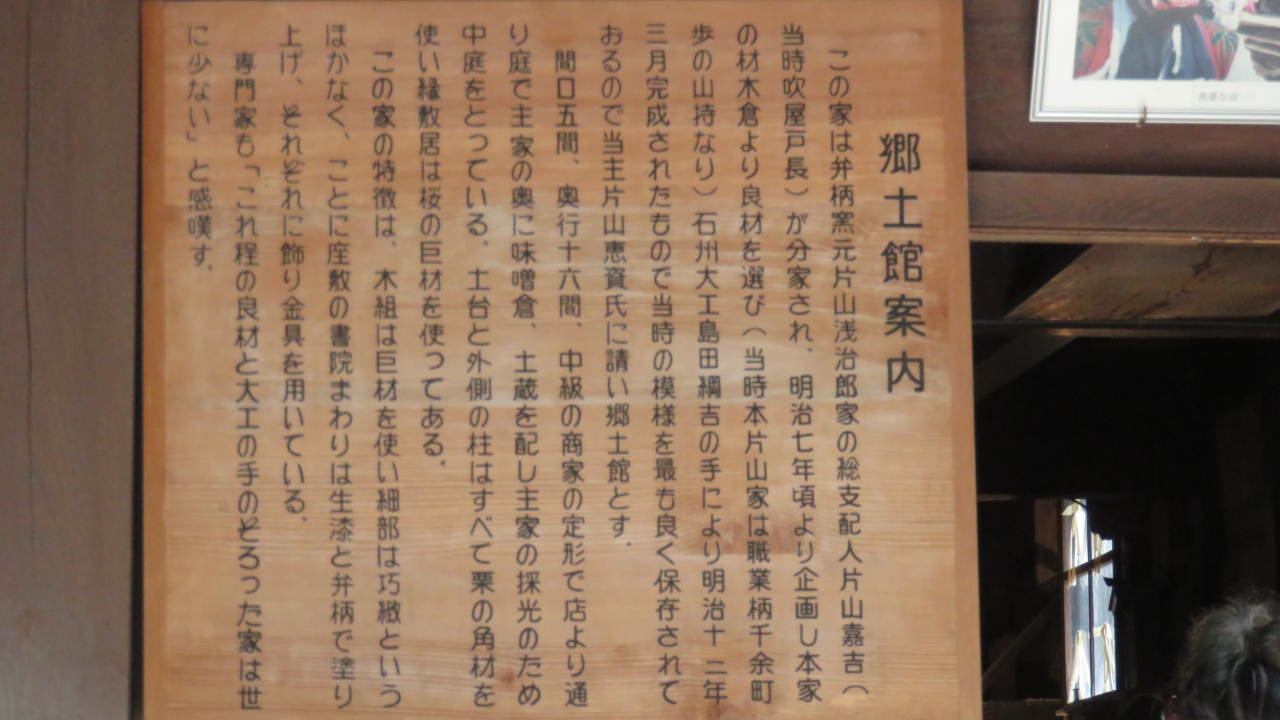 郷土館案内
この家は弁柄窯元片山浅治郎家の総支配人片山嘉吉（
当時吹屋戸長）が分家され、明治七年頃より企画し本家
の材木倉より良材を選び（当時本片山家は職業柄千余町
歩の山持なり）石州大工島田綱吉の手により明治十二年
三月完成されたもので当時の模様を最も良く保存されて
おるので当主片山恵資氏に請い郷土館とす．
間口五間、奥行十六間、中級の商家の定形で店より通
り庭で主家の奥に味噌倉、土蔵を配し主家の採光のため
中庭をとっている．土台と外側の柱はすべて栗の角材を
使い縁敷居は桜の巨材を使ってある．
この家の特徴は、木組は巨材を使い細部は巧緻という
ほかなく、ことに座敷の書院まわりは生漆と弁柄で塗り
上げ、それぞれに飾り金具を用いている．
専門家も「これ程の良材と大工の手のそろった家は世
に少ない」と感嘆す．